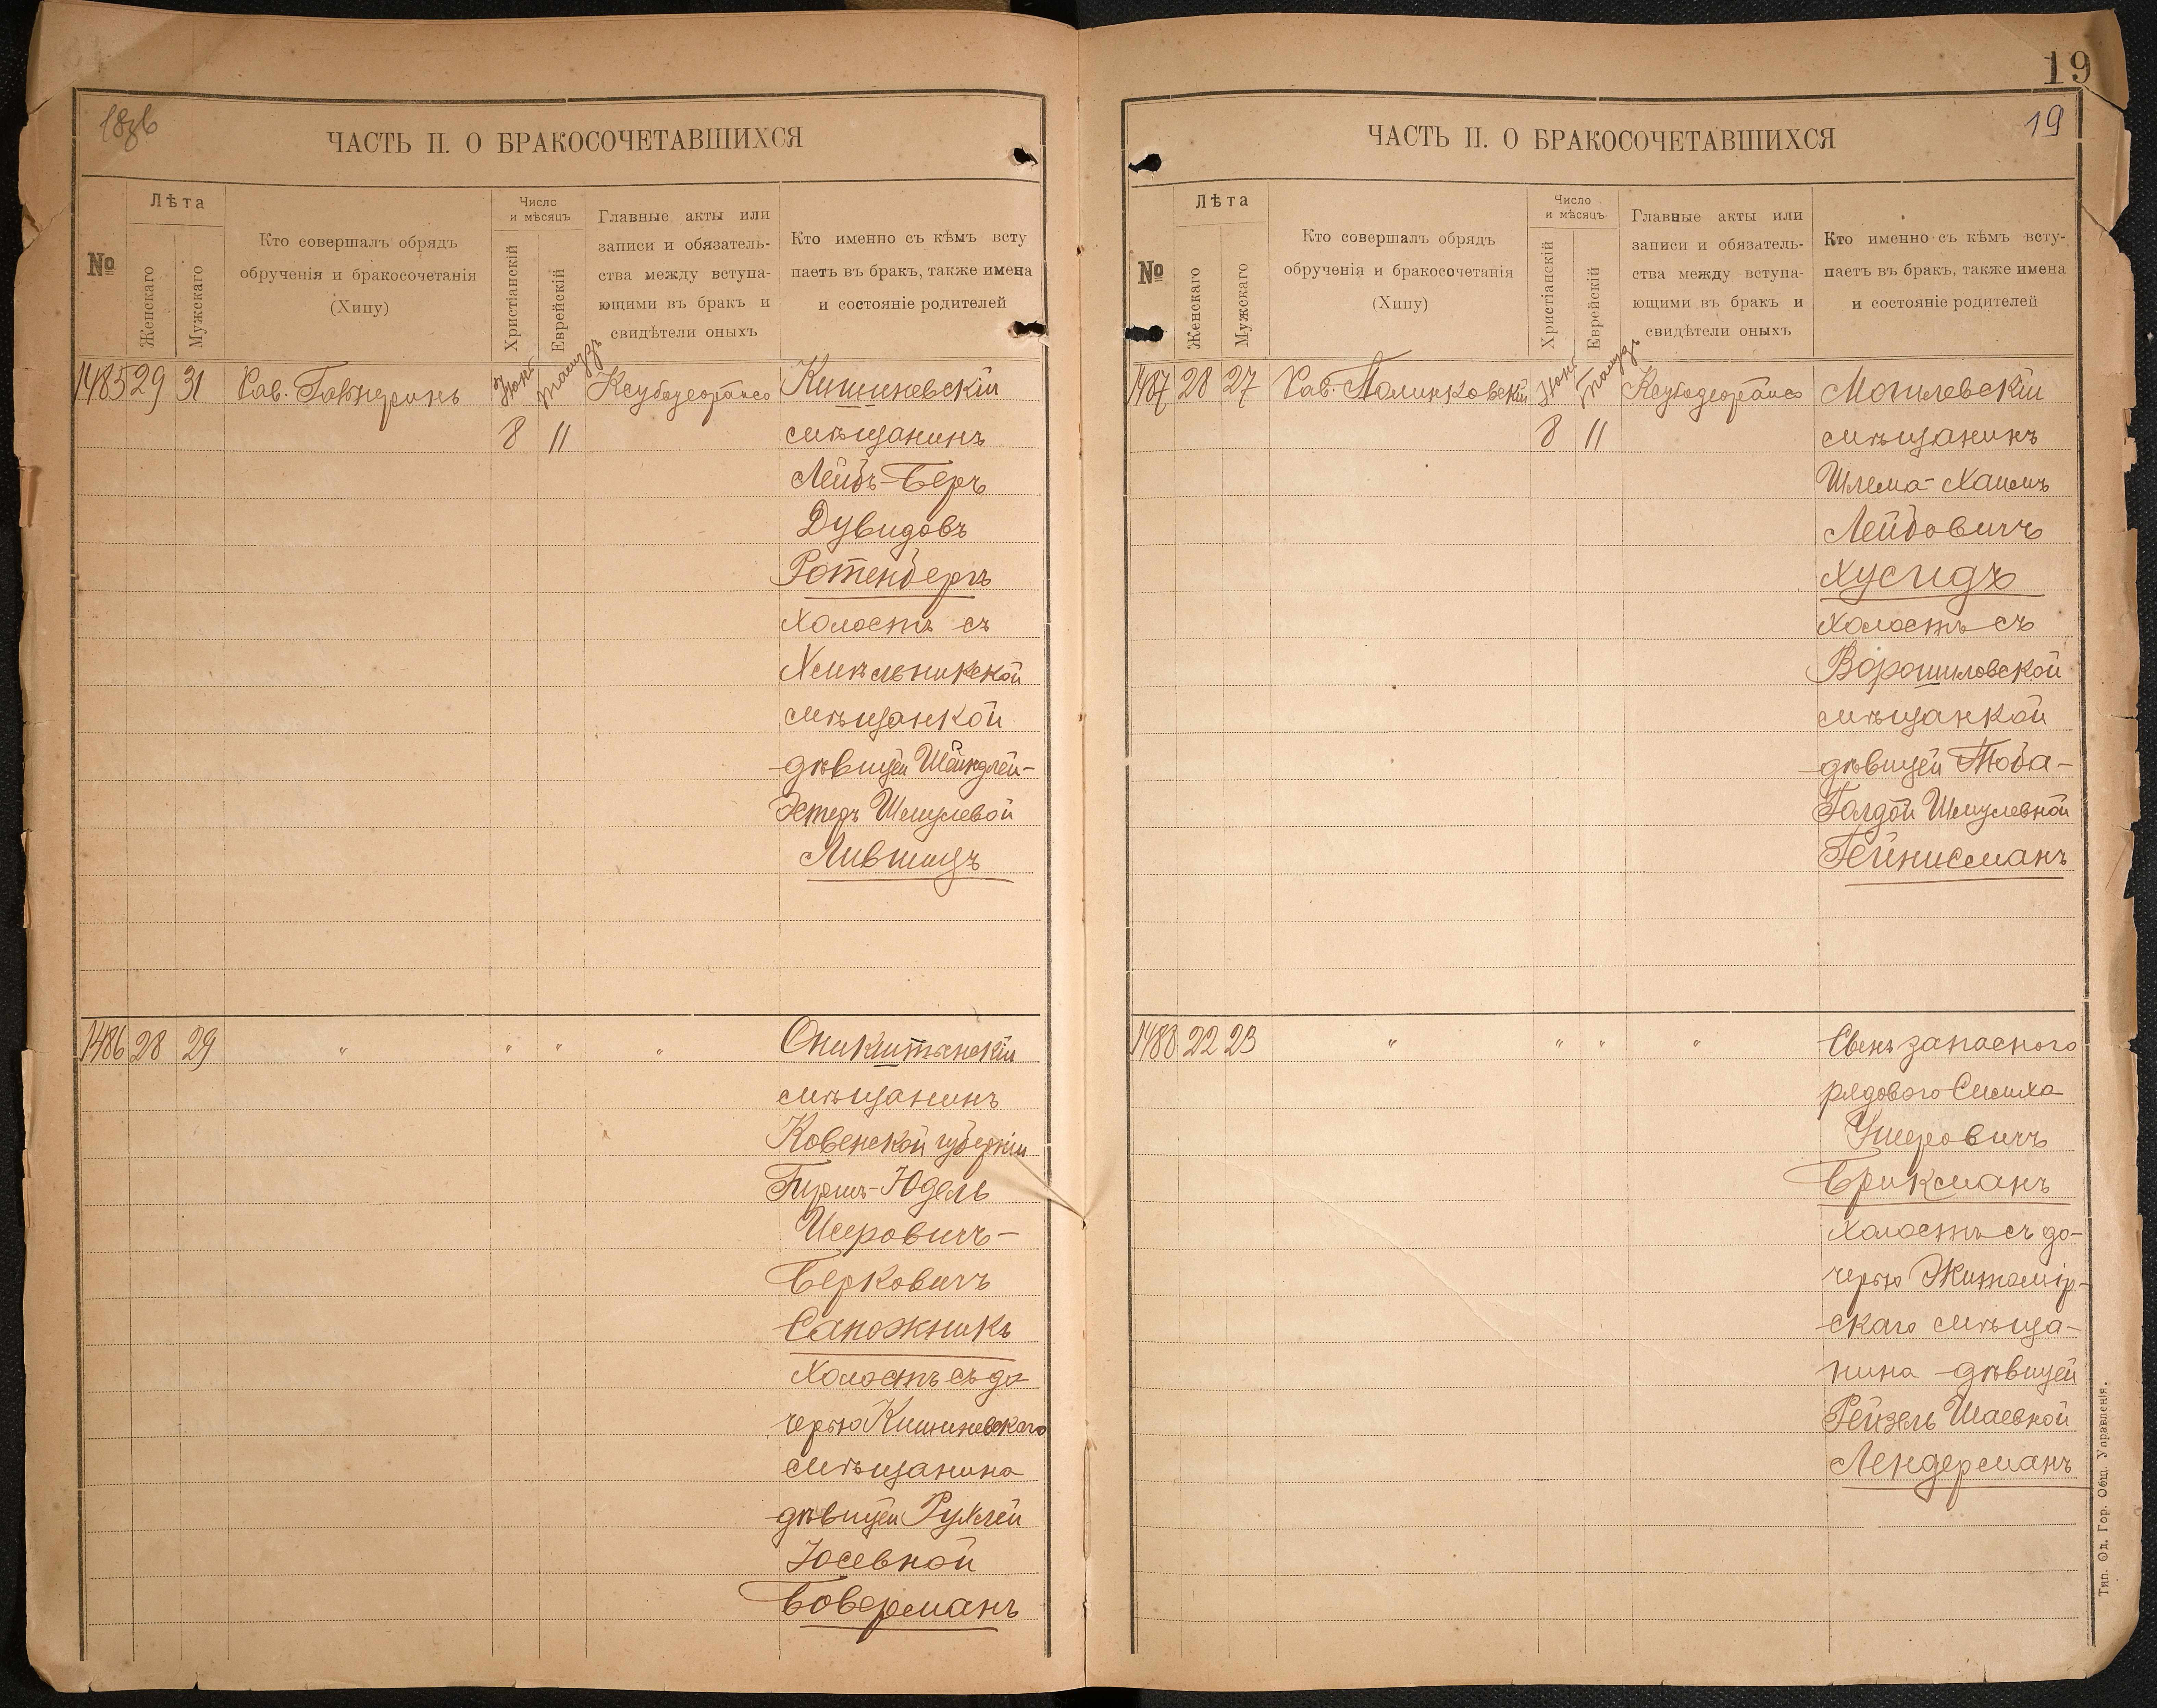 18об
ЧАСТЬ II. О БРАКОСОЧЕТАВШИХСЯ
№
Лѣта
Женскаго
Мужскаго
Кто совершалъ обрядъ
обрученія и бракосочетанія
(Хипу)
Число
и мѣсяцъ
Христіанскій
Еврейскій
Главные акты или
записи и обязатель-
ства между вступа-
ющими въ бракъ и
свидѣтели оныхъ
Кто именно съ кѣмъ всту
паетъ въ бракъ, также имена
и состояніе родителей
1485 29 31 Рав. Іюня 8 11 Кишиневскій
мѣщанинъ
Лейбъ-Беръ
Дувидовъ
Ротенбергъ
холостъ съ
Хмѣльникской
мѣщанкой
дѣвицей Шейндлей-
Эстеръ Шмулевой
Лившицъ
1486 28 29 " " " " Оникштынскій
мѣщанинъ
Ковенской губерніи
Гиршъ-Юдель
Исеровичъ-
Берковичъ
Сапожникъ
холостъ съ до
черью Кишиневскаго
мѣщанина
дѣвицей Рухлей
Іосевной
Боверманъ
19
19
ЧАСТЬ II. О БРАКОСОЧЕТАВШИХСЯ
№
Лѣта
Женскаго
Мужскаго
Кто совершалъ обрядъ
обрученія и бракосочетанія
(Хипу)
Число
и мѣсяцъ
Христіанскій
Еврейскій
Главные акты или
записи и обязатель-
ства между вступа-
ющими въ бракъ и
свидѣтели оныхъ
Кто именно съ кѣмъ всту-
паетъ въ бракъ, также имена
и состояніе родителей
1487 28 27 Рав. Полинковскій Іюня 8 11 Могилевскій
мѣщанинъ
Шлема-Хаимъ
Лейбовичъ
Хусидъ
холостъ съ
Ворошиловской
мѣщанкой
дѣвицей Тоба-
Голдой Шмулевной
Гейнисманъ
1488 22 23 " " " " Сынъ запасного
рядового Симха
Ушеровичъ
Брикманъ
холостъ съ до-
черью Житомір-
скаго мѣща-
нина дѣвицей
Рейзель Шаевной
Лендерманъ
Тип. Од. Гор. Общ. Управленія.